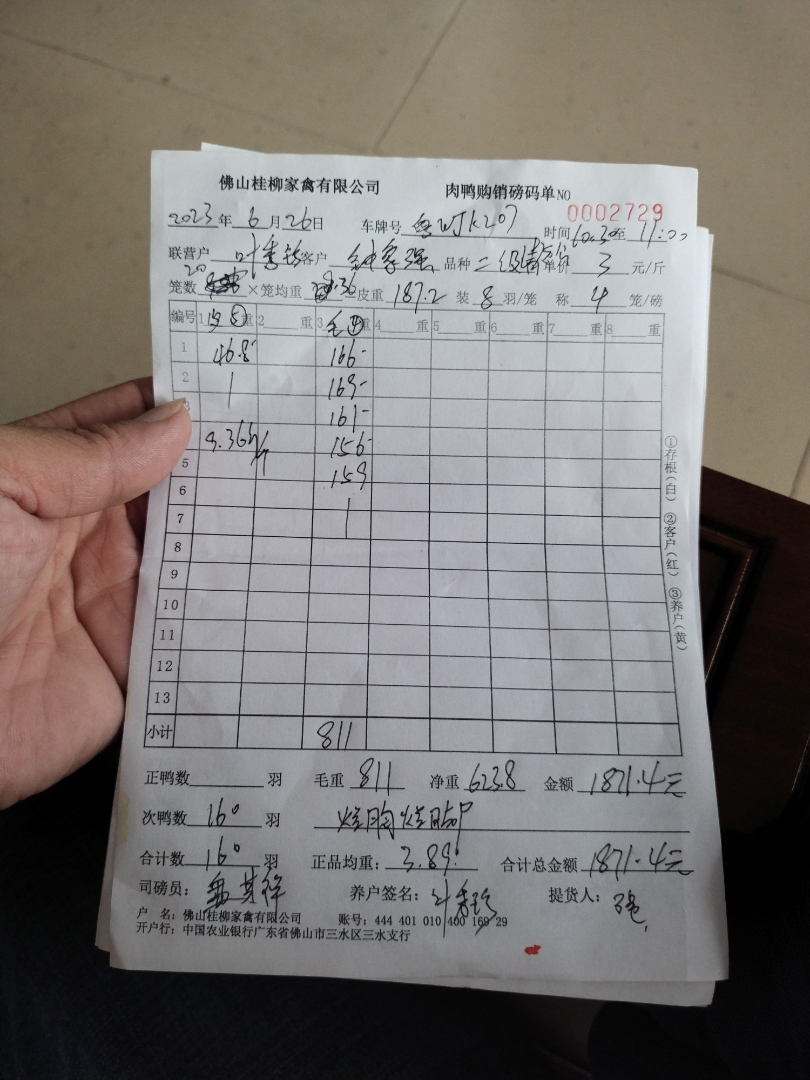 佛山桂柳家禽有限公司 肉鸭购销磅码单NO 0002729
2023年 6月 26日 车牌号 粤WJK207 时间 10:30至 11:00
联营户 叶秀 客户 钟 强 品种 二级 单价 3 元/斤
笼数 20 ×笼均重 9.36 =皮重 187.2 装 8 羽/笼 称 4 笼/磅
编号 1 皮⑤ 重 2 重 3 毛④ 重 4 重 5 重 6 重 7 重 8 重
1 46.8 166
2 1 169
161
9.36 156
5 159
6
7
8
9
10
11
12
13
小计 811
①存根(白) ②客户(红) ③养户(黄)
正鸭数 羽 毛重 811 净重 623.8 金额 1871.4元
次鸭数 160 羽
合计数 160 羽 正品均重: 3.89 合计总金额 1871.4元
司磅员: 养户签名: 叶秀 提货人: 强
户 名: 佛山桂柳家禽有限公司 账号: 444 401 010 400 169 29
开户行: 中国农业银行广东省佛山市三水区三水支行